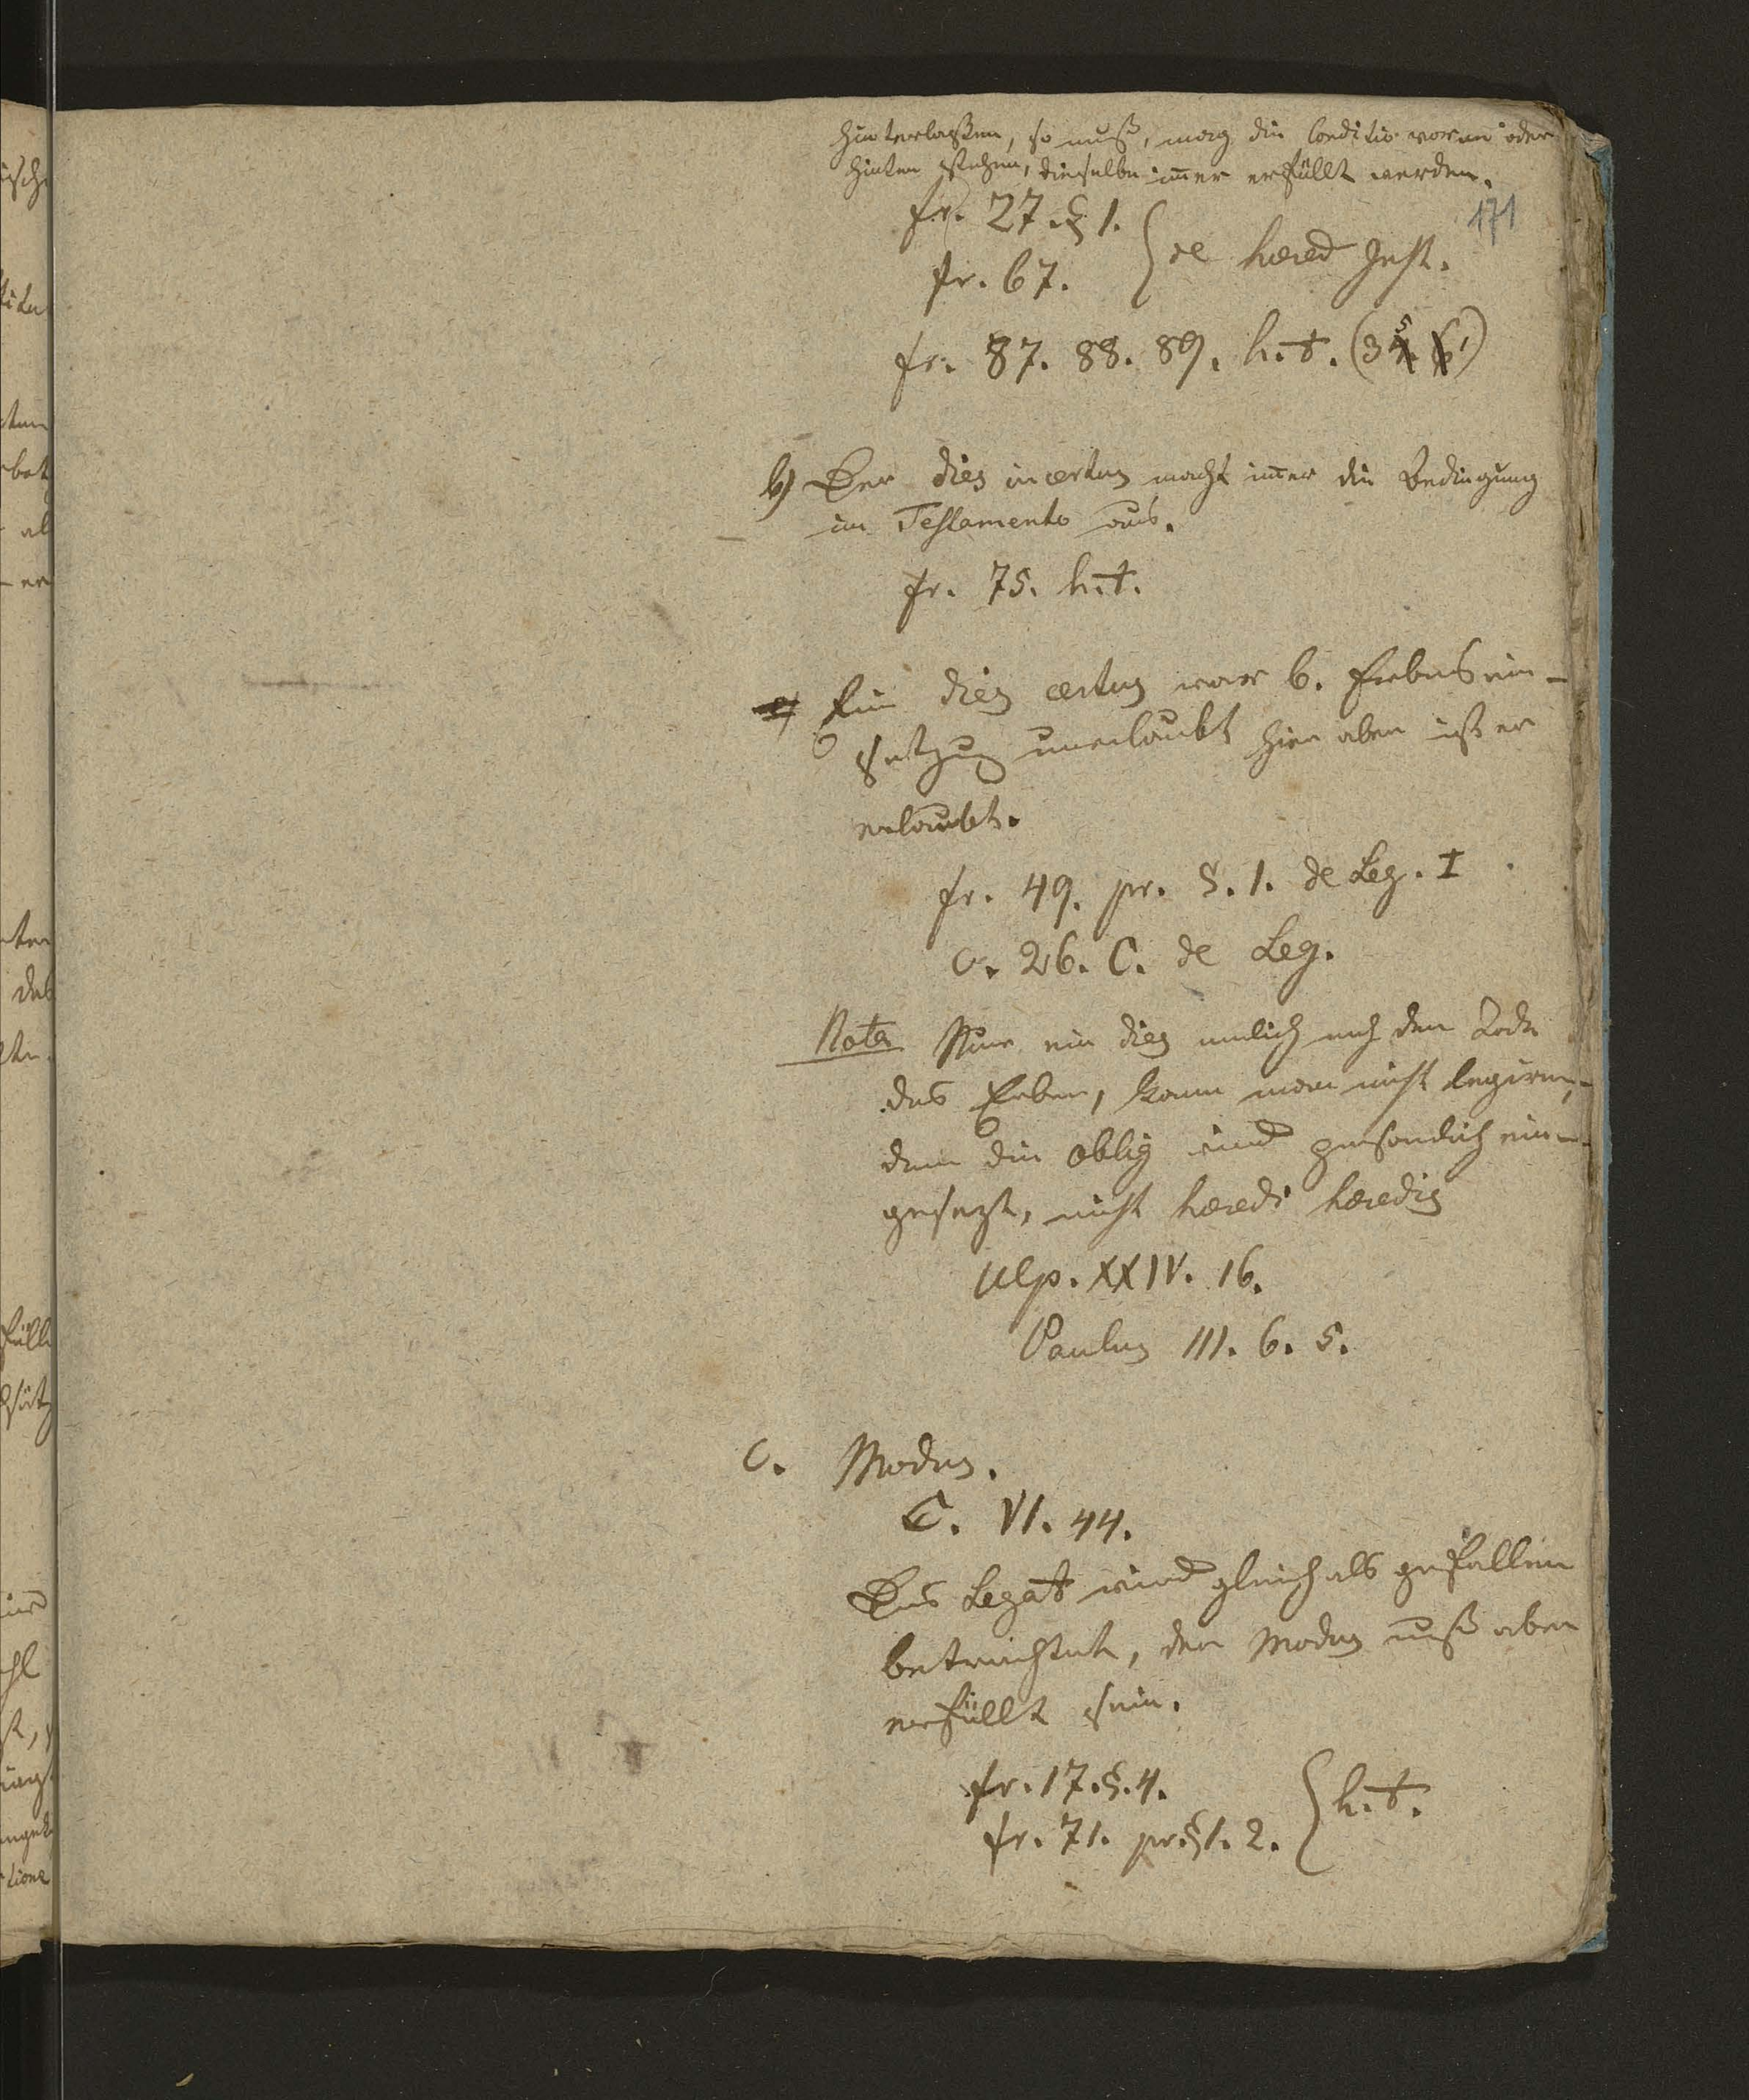 hinterlaßen, so muß, mag die Conditio voran oder
hinten stehen, dieselbe im̄er erfüllt werden.
171
fr. 27. § 1.
fr. 67. } de hered Inst.
fr. 87. 88. 89. h. t. (35. 1)
b) Der dies incertus macht im̄er die Bedingung
im Testamento aus.
fr. 75. h. t.
Ein dies certus war b. Erbesein-
setzung unerlaubt hier aber ist er
erlaubt.
fr. 49. pr. §. 1. de Leg. I
c. 26. C. de Leg.
Nota Nur ein dies nemlich nach dem Tode
des Erben, kann man nicht legiren,
denn die oblig wird persönlich ein-
gesezt, nicht heredi heredis
Ulp. XXIV. 16.
Paulus III. 6. 5.
C. Modus.
C. VI. 44.
Das Legat wird gleich als gefallen
betrachtet, der Modus muß aber
erfüllt sein.
fr. 17. §. 4.
fr. 71. pr. § 1. 2. } h. t.